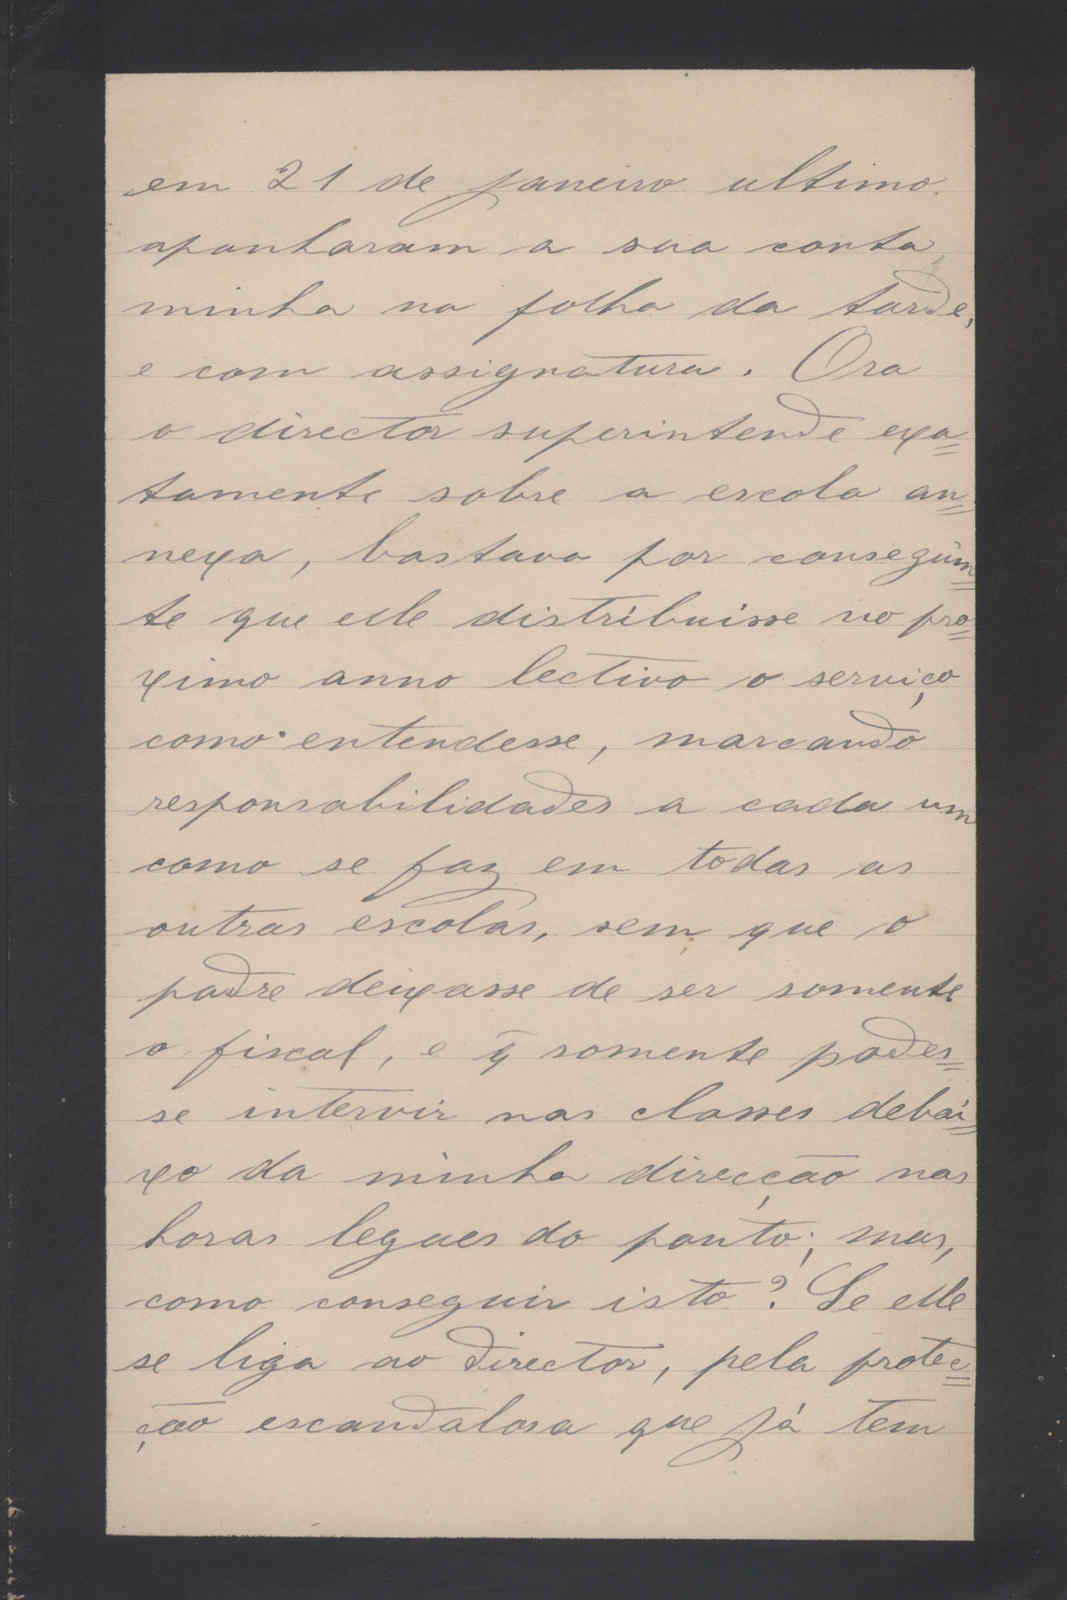 em 21 de janeiro ultimo
apanharam a sua conta,
minha na folha da tarde,
e com assignatura. Ora
o director superintende exa=
tamente sobre a escola an=
nexa, bastava por conseguin=
te que elle distribuisse no pro=
ximo anno lectivo o serviço
como entendesse, marcando
responsabilidades a cada um
como se faz em todas as
outras escolas, sem que o
padre deixasse de ser somente
o fiscal, e q̃ somente podes=
se intervir nas classes debai=
xo da minha direcção nas
horas legaes do ponto; mas,
como conseguir isto? Se elle
se liga ao director, pela protec=
ção escandalosa que já tem